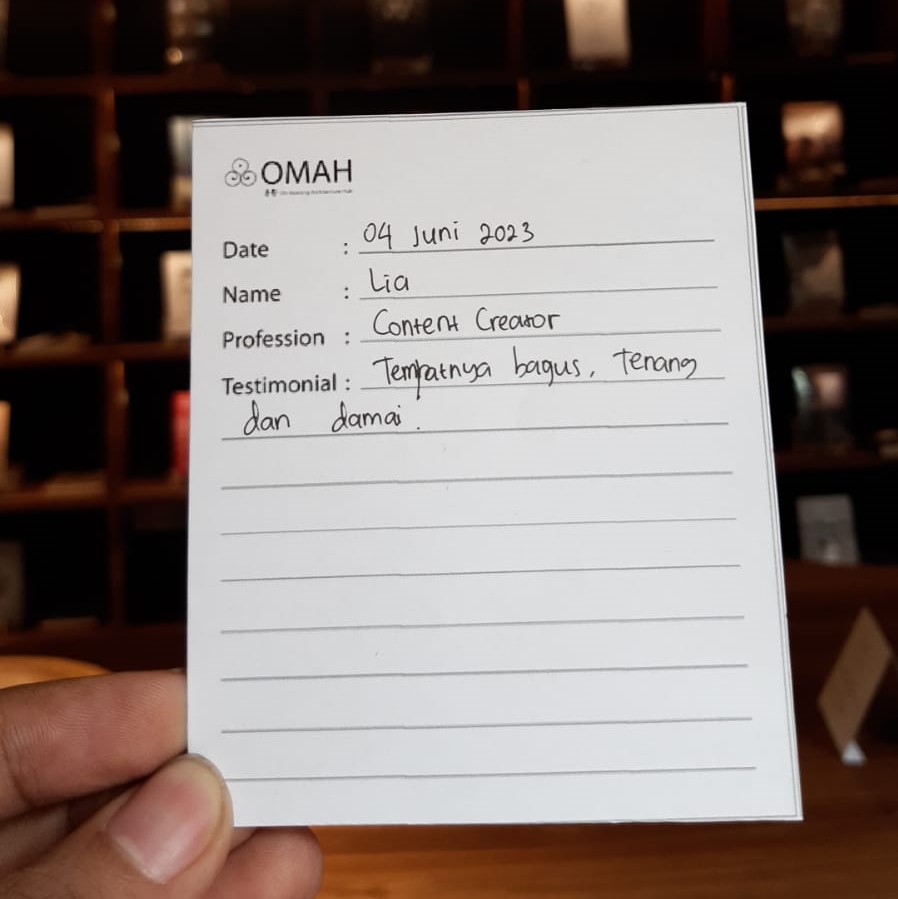 OMAH
Date : 04 Juni 2023
Name : Lia
Profession : Content Creator
Testimonial : Tempatnya bagus, Tenang
dan damai.